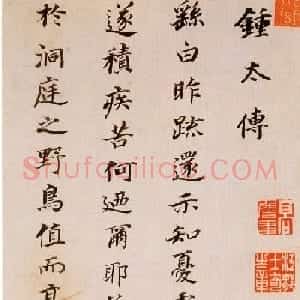 鍾太傅
繇白昨疏還示知憂
遂積疾苦何迺爾耶
於洞庭之野鳥值而高